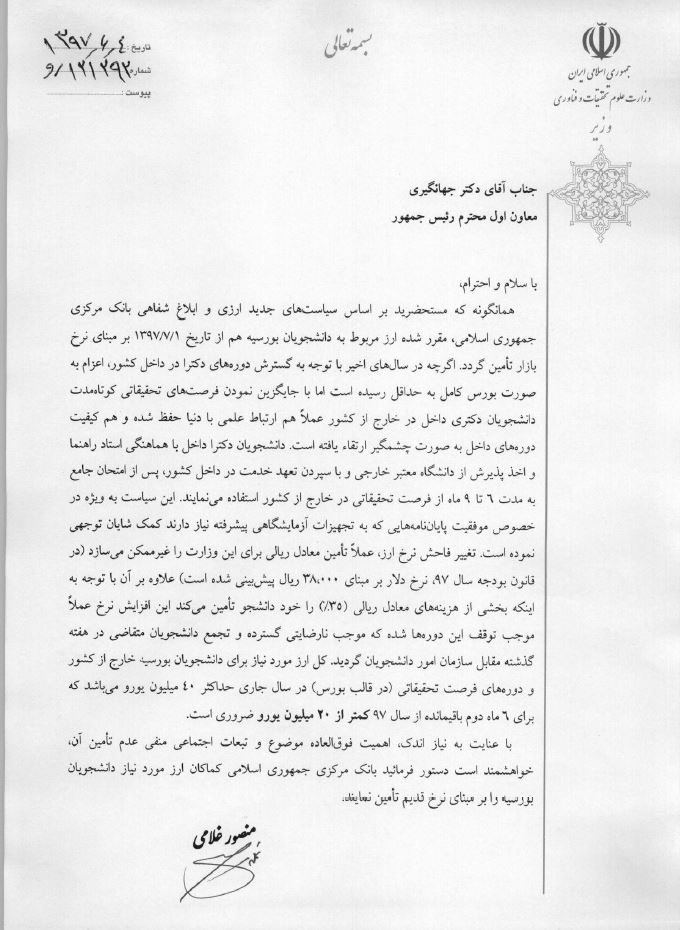 بسمه تعالی
جمهوری اسلامی ایران
وزارت علوم تحقیقات و فناوری
وزیر
تاریخ: ۱۳۹۷/۶/۴
شماره: ۱۲۱۳۹۲/و
پیوست:
جناب آقای دکتر جهانگیری
معاون اول محترم رئیس جمهور
با سلام و احترام،
همانگونه که مستحضرید بر اساس سیاست‌های جدید ارزی و ابلاغ شفاهی بانک مرکزی
جمهوری اسلامی، مقرر شده ارز مربوط به دانشجویان بورسیه هم از تاریخ ۱۳۹۷/۷/۱ بر مبنای نرخ
بازار تأمین گردد. اگرچه در سال‌های اخیر با توجه به گسترش دوره‌های دکترا در داخل کشور، اعزام به
صورت بورس کامل به حداقل رسیده است اما با جایگزین نمودن فرصت‌های تحقیقاتی کوتاه‌مدت
دانشجویان دکتری داخل در خارج از کشور عملاً هم ارتباط علمی با دنیا حفظ شده و هم کیفیت
دوره‌های داخل به صورت چشمگیر ارتقاء یافته است. دانشجویان دکترا داخل با هماهنگی استاد راهنما
و اخذ پذیرش از دانشگاه معتبر خارجی و با سپردن تعهد خدمت در داخل کشور، پس از امتحان جامع
به مدت ۶ تا ۹ ماه از فرصت تحقیقاتی در خارج از کشور استفاده می‌نمایند. این سیاست به ویژه در
خصوص موفقیت پایان‌نامه‌هایی که به تجهیزات آزمایشگاهی پیشرفته نیاز دارند کمک شایان توجهی
نموده است. تغییر فاحش نرخ ارز، عملاً تأمین معادل ریالی برای این وزارت را غیرممکن می‌سازد (در
قانون بودجه سال ۹۷، نرخ دلار بر مبنای ۳۸,۰۰۰ ریال پیش‌بینی شده است) علاوه بر آن با توجه به
اینکه بخشی از هزینه‌های معادل ریالی (۳۵٪) را خود دانشجو تأمین می‌کند این افزایش نرخ عملاً
موجب توقف این دوره‌ها شده که موجب نارضایتی گسترده و تجمع دانشجویان متقاضی در هفته
گذشته مقابل سازمان امور دانشجویان گردید. کل ارز مورد نیاز برای دانشجویان بورسیه خارج از کشور
و دوره‌های فرصت تحقیقاتی (در قالب بورس) در سال جاری حداکثر ۴۰ میلیون یورو می‌باشد که
برای ۶ ماه دوم باقیمانده از سال ۹۷ کمتر از ۲۰ میلیون یورو ضروری است.
با عنایت به نیاز اندک، اهمیت فوق‌العاده موضوع و تبعات اجتماعی منفی عدم تأمین آن،
خواهشمند است دستور فرمائید بانک مرکزی جمهوری اسلامی کماکان ارز مورد نیاز دانشجویان
بورسیه را بر مبنای نرخ قدیم تأمین نمایند.
منصور غلامی